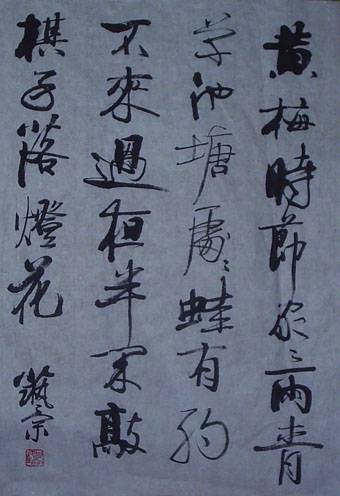 黄梅時節家々雨青
草池塘處々蛙有約
不來過夜半閑敲
棋子落燈花